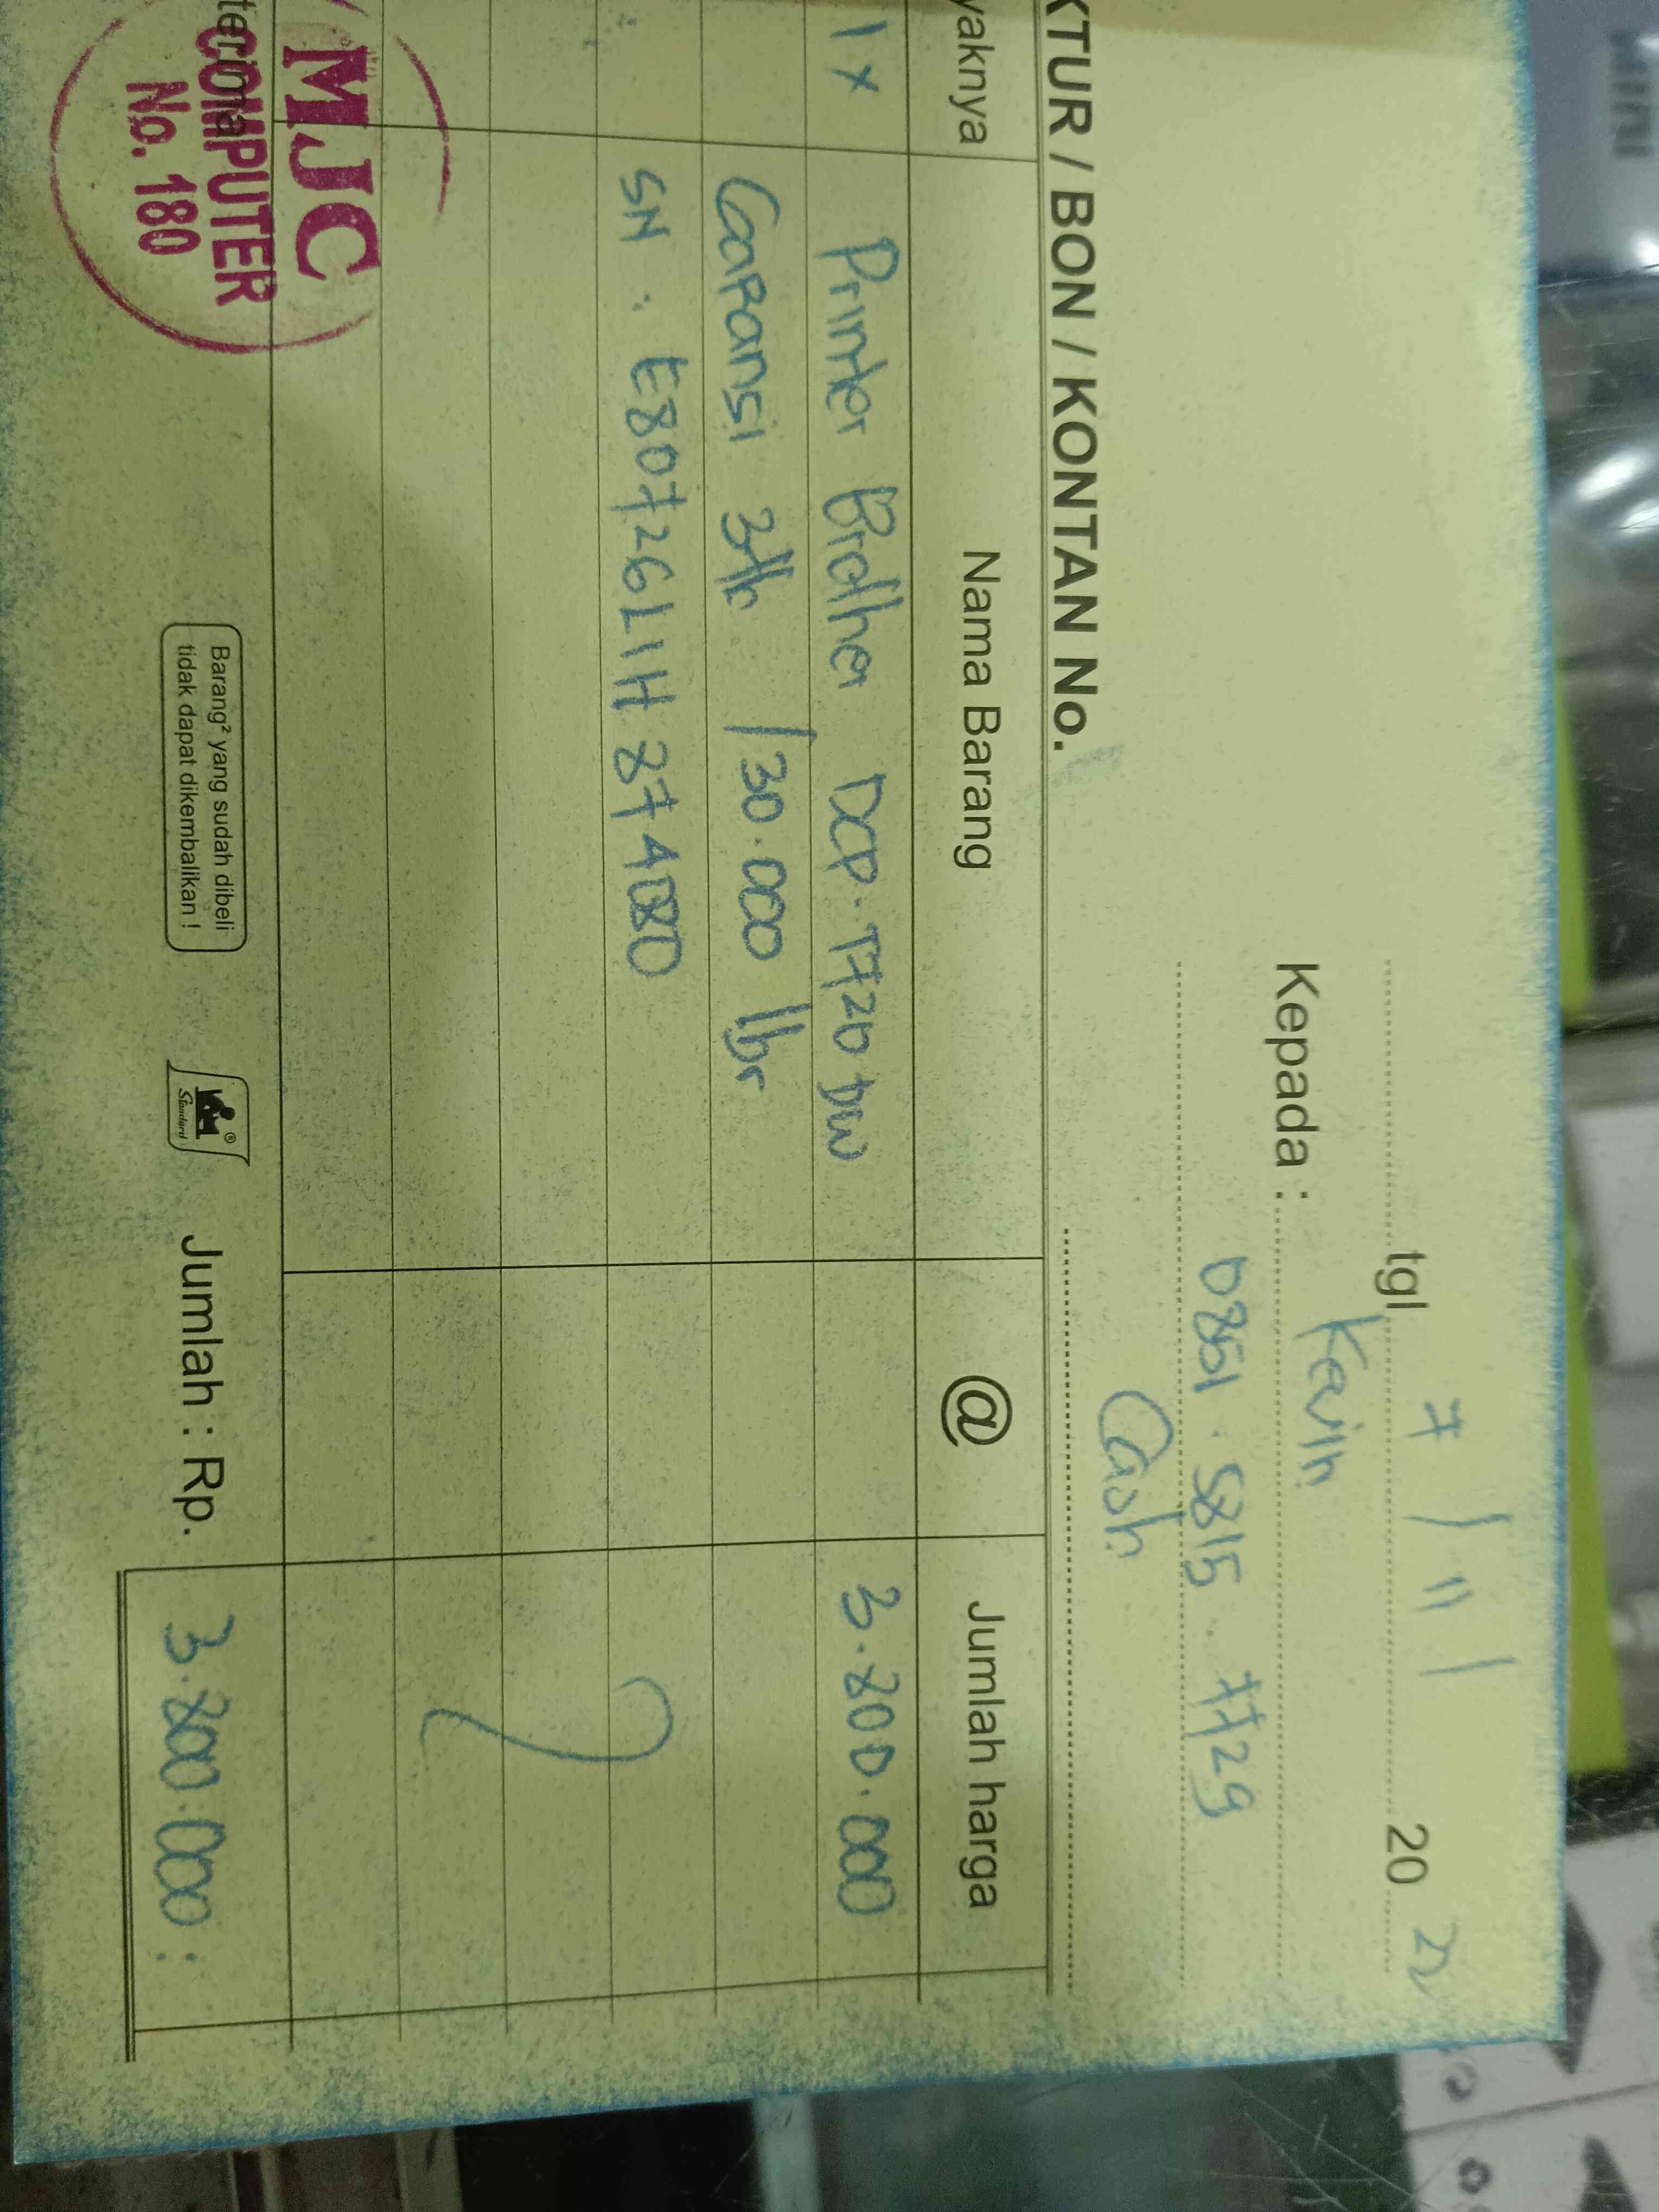 tgl 7 / 11 / 20 22
Kepada : Kevin
0851 . 5815 7729
Cash
KTUR / BON / KONTAN No.
yaknya Nama Barang @ Jumlah harga
1 x Printer Brother DCP. T720 DW 3.200.000
Garansi 3th / 30.000 lbr
SN : E80726L1H 874080
Jumlah : Rp. 3.200.000 :
Barang² yang sudah dibeli
tidak dapat dikembalikan !
Standard ®
terima
MJC
COMPUTER
No. 180
MINI